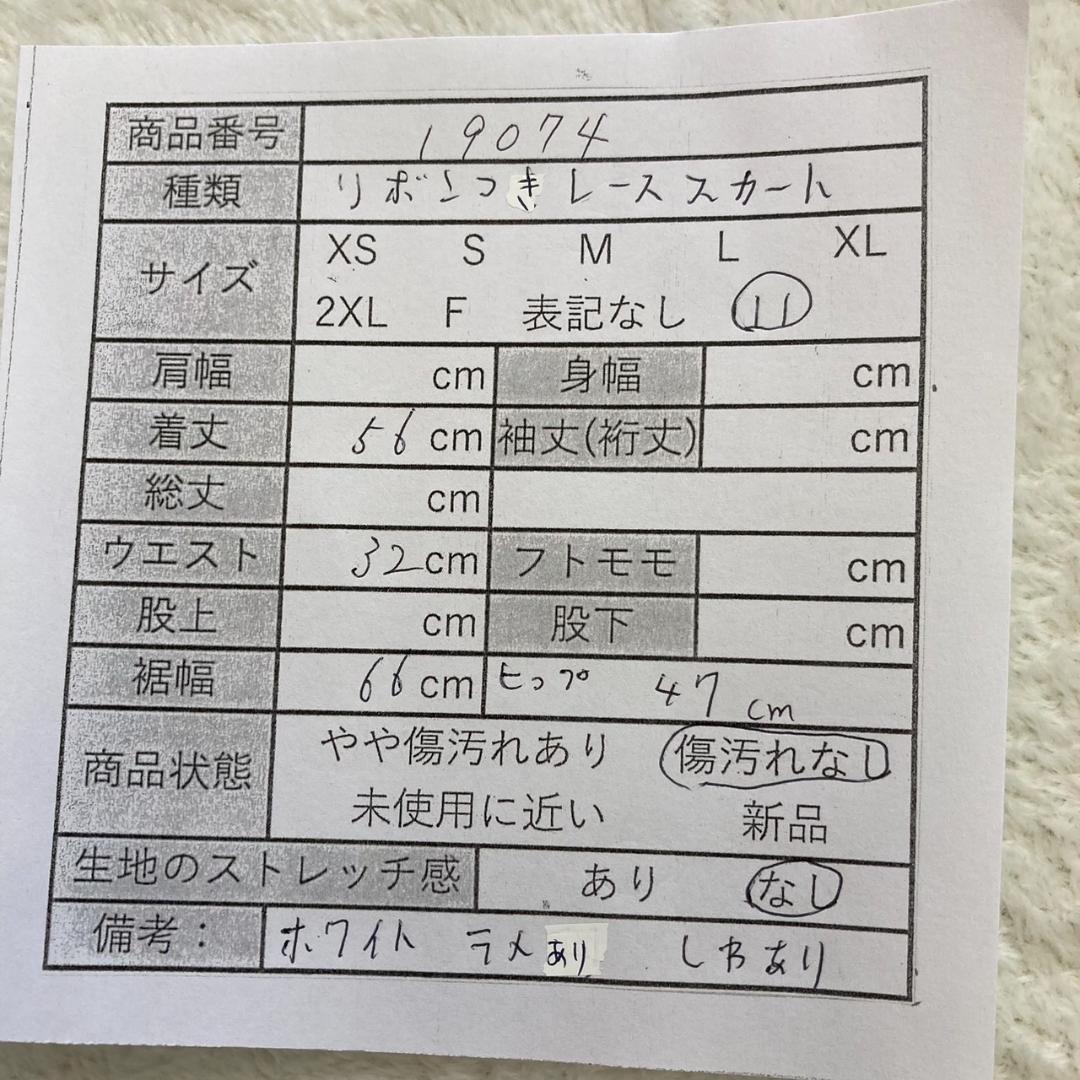 商品番号 19074
種類 リボンつきレーススカート
サイズ XS S M L XL
2XL F 表記なし 11
肩幅 cm 身幅 cm
着丈 56 cm 袖丈(裄丈) cm
総丈 cm
ウエスト 32 cm フトモモ cm
股上 cm 股下 cm
裾幅 66 cm ヒップ 47 cm
商品状態 やや傷汚れあり 傷汚れなし
未使用に近い 新品
生地のストレッチ感 あり なし
備考： ホワイト ラメあり しわあり